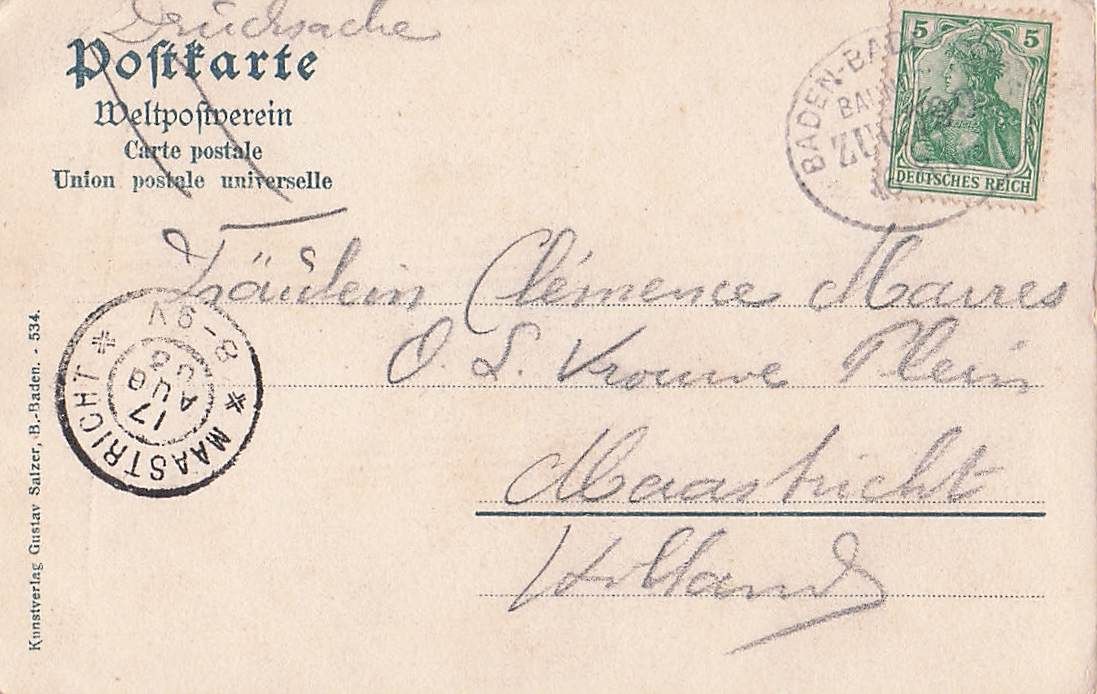 Drucksache
Postkarte
Weltpostverein
Carte postale
Union postale universelle
5 5
DEUTSCHES REICH
BADEN-BAD
ZU
Fräulein Clémence Marres
O. L. Vrouwe Plein
Maastricht
Holland
MAASTRICHT
17
AUG
8-9V
Kunstverlag Gustav Salzer, B.-Baden. - 534.